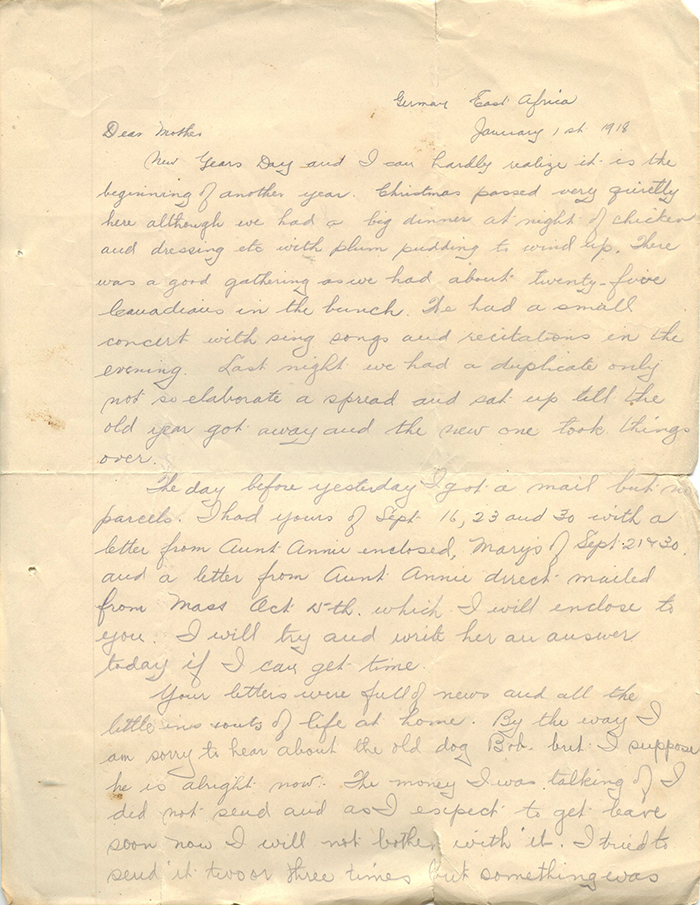 German East Africa
January 1st 1918
Dear Mother
New Years Day and I can hardly realize it is the
beginning of another year. Christmas passed very quietly
here although we had a big dinner at night of chicken
and dressing etc with plum pudding to wind up. There
was a good gathering as we had about twenty-five
Canadians in the bunch. We had a small
concert with sing songs and recitations in the
evening. Last night we had a duplicate only
not so elaborate a spread and sat up till the
old year got away and the new one took things
over.
The day before yesterday I got a mail but no
parcels. I had yours of Sept 16, 23 and 30 with a
letter from Aunt Annie enclosed, Mary's of Sept 21 & 30.
and a letter from Aunt Annie direct mailed
from Mass Oct 5th. which I will enclose to
you. I will try and write her an answer
today if I can get time.
Your letters were full of news and all the
little ins & outs of life at home. By the way I
am sorry to hear about the old dog Bob. but I suppose
he is alright now. The money I was talking of I
did not send and as I expect to get leave
soon now I will not bother with it. I tried to
send it two or three times but something was